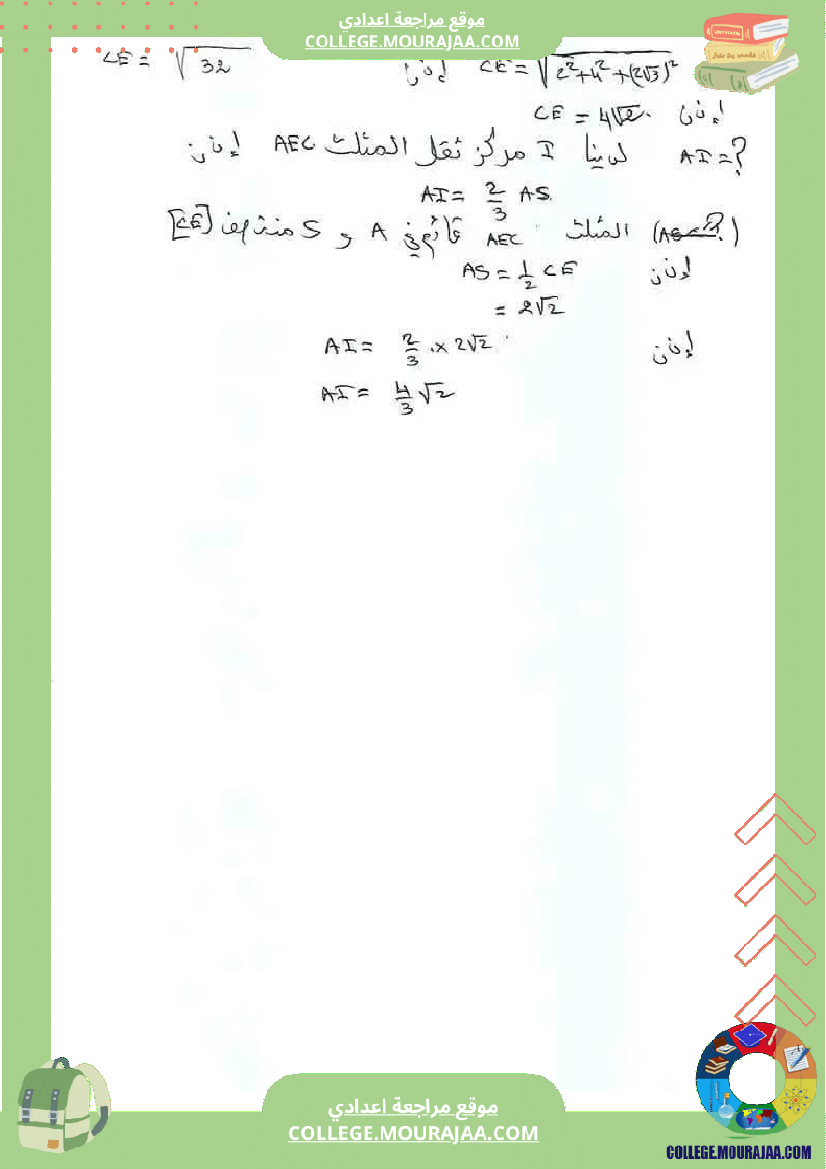 موقع مراجعة اعدادي
COLLEGE.MOURAJAA.COM
CE = √(2²+4²+(2√3)²) إذن CE = √32
إذن CE = 4√2.
AI=? لدينا I مركز ثقل المثلث AEC إذن
AI = 2/3 AS.
(AS=?) المثلث AEC قائم في A و S منتصف [CE]
إذن AS = 1/2 CE
= 2√2
إذن AI = 2/3 × 2√2
AI = 4/3 √2
موقع مراجعة اعدادي
COLLEGE.MOURAJAA.COM
COLLEGE.MOURAJAA.COM